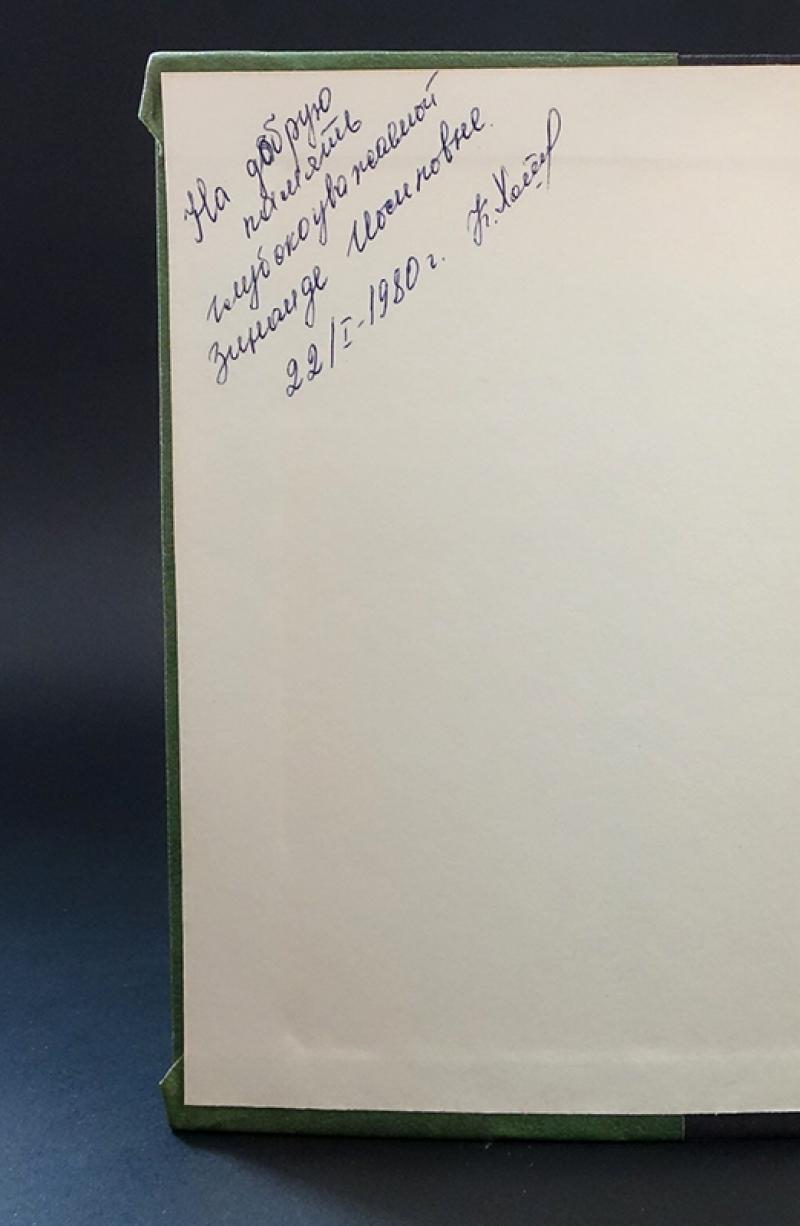 На добрую
память
глубокоуважаемой
Зинаиде Иосиповне.
22/I-1980 г.